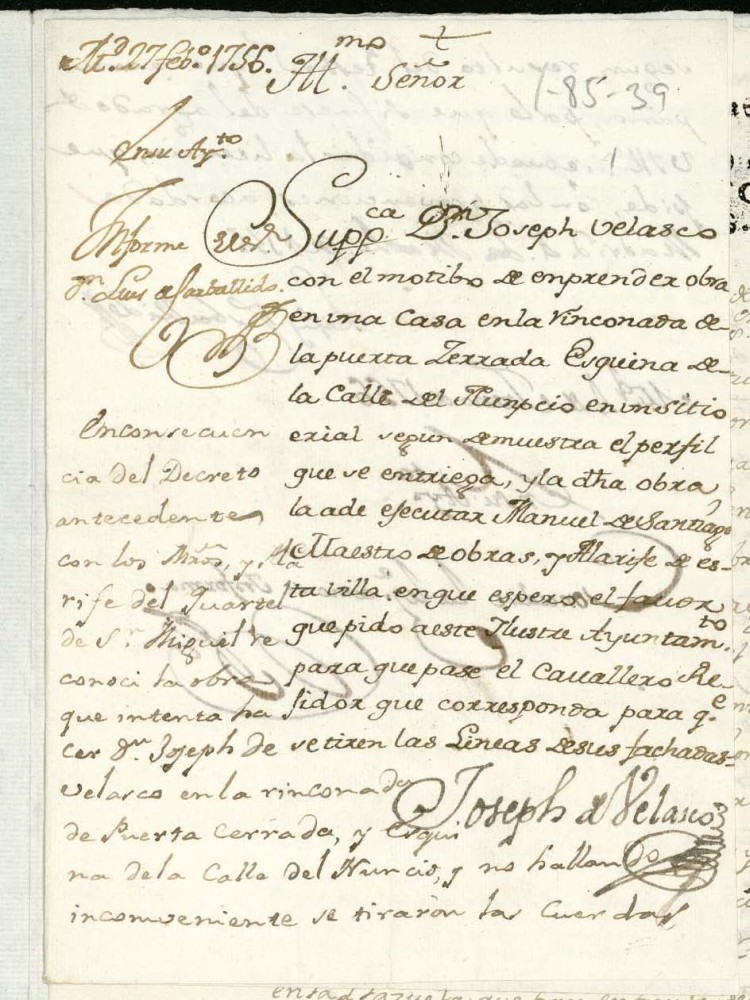 M.d 27 feb.o 1756.
Ill.mo Señor
1-85-39
En su Ay.to
Informe el Sr
Dn. Luis de Carballido.
Supp.ca Dn. Joseph Velasco
con el motibo de enprender obra
en vna Casa en la Rinconada de
la puerta Zerrada Esquina de
la Calle del Nunpcio en vn sitio
erial segun demuestra el perfil
que se entriega, y la dha obra
la a de efecutar Manuel de Santiago
Maestro de obras, y Alarife de es-
ta villa. en que espero el favor
que pido a este Ilustre Ayuntam.to
para que pase el Cavallero Re-
sidor que corresponda para q.e
se tiren las Lineas de sus fachadas
Joseph de Velasco
En consecuen
cia del Decreto
antecedente
con los Mros, y Ala
rife del Quartel
de Sn. Miguel re
conoci la obra
que intenta ha
cer Dn. Joseph de
Velasco en la rinconada
de Puerta Cerrada, y Esqui
na de la Calle del Nuncio, y no hallando
incomveniente se tiraron las Cuerdas